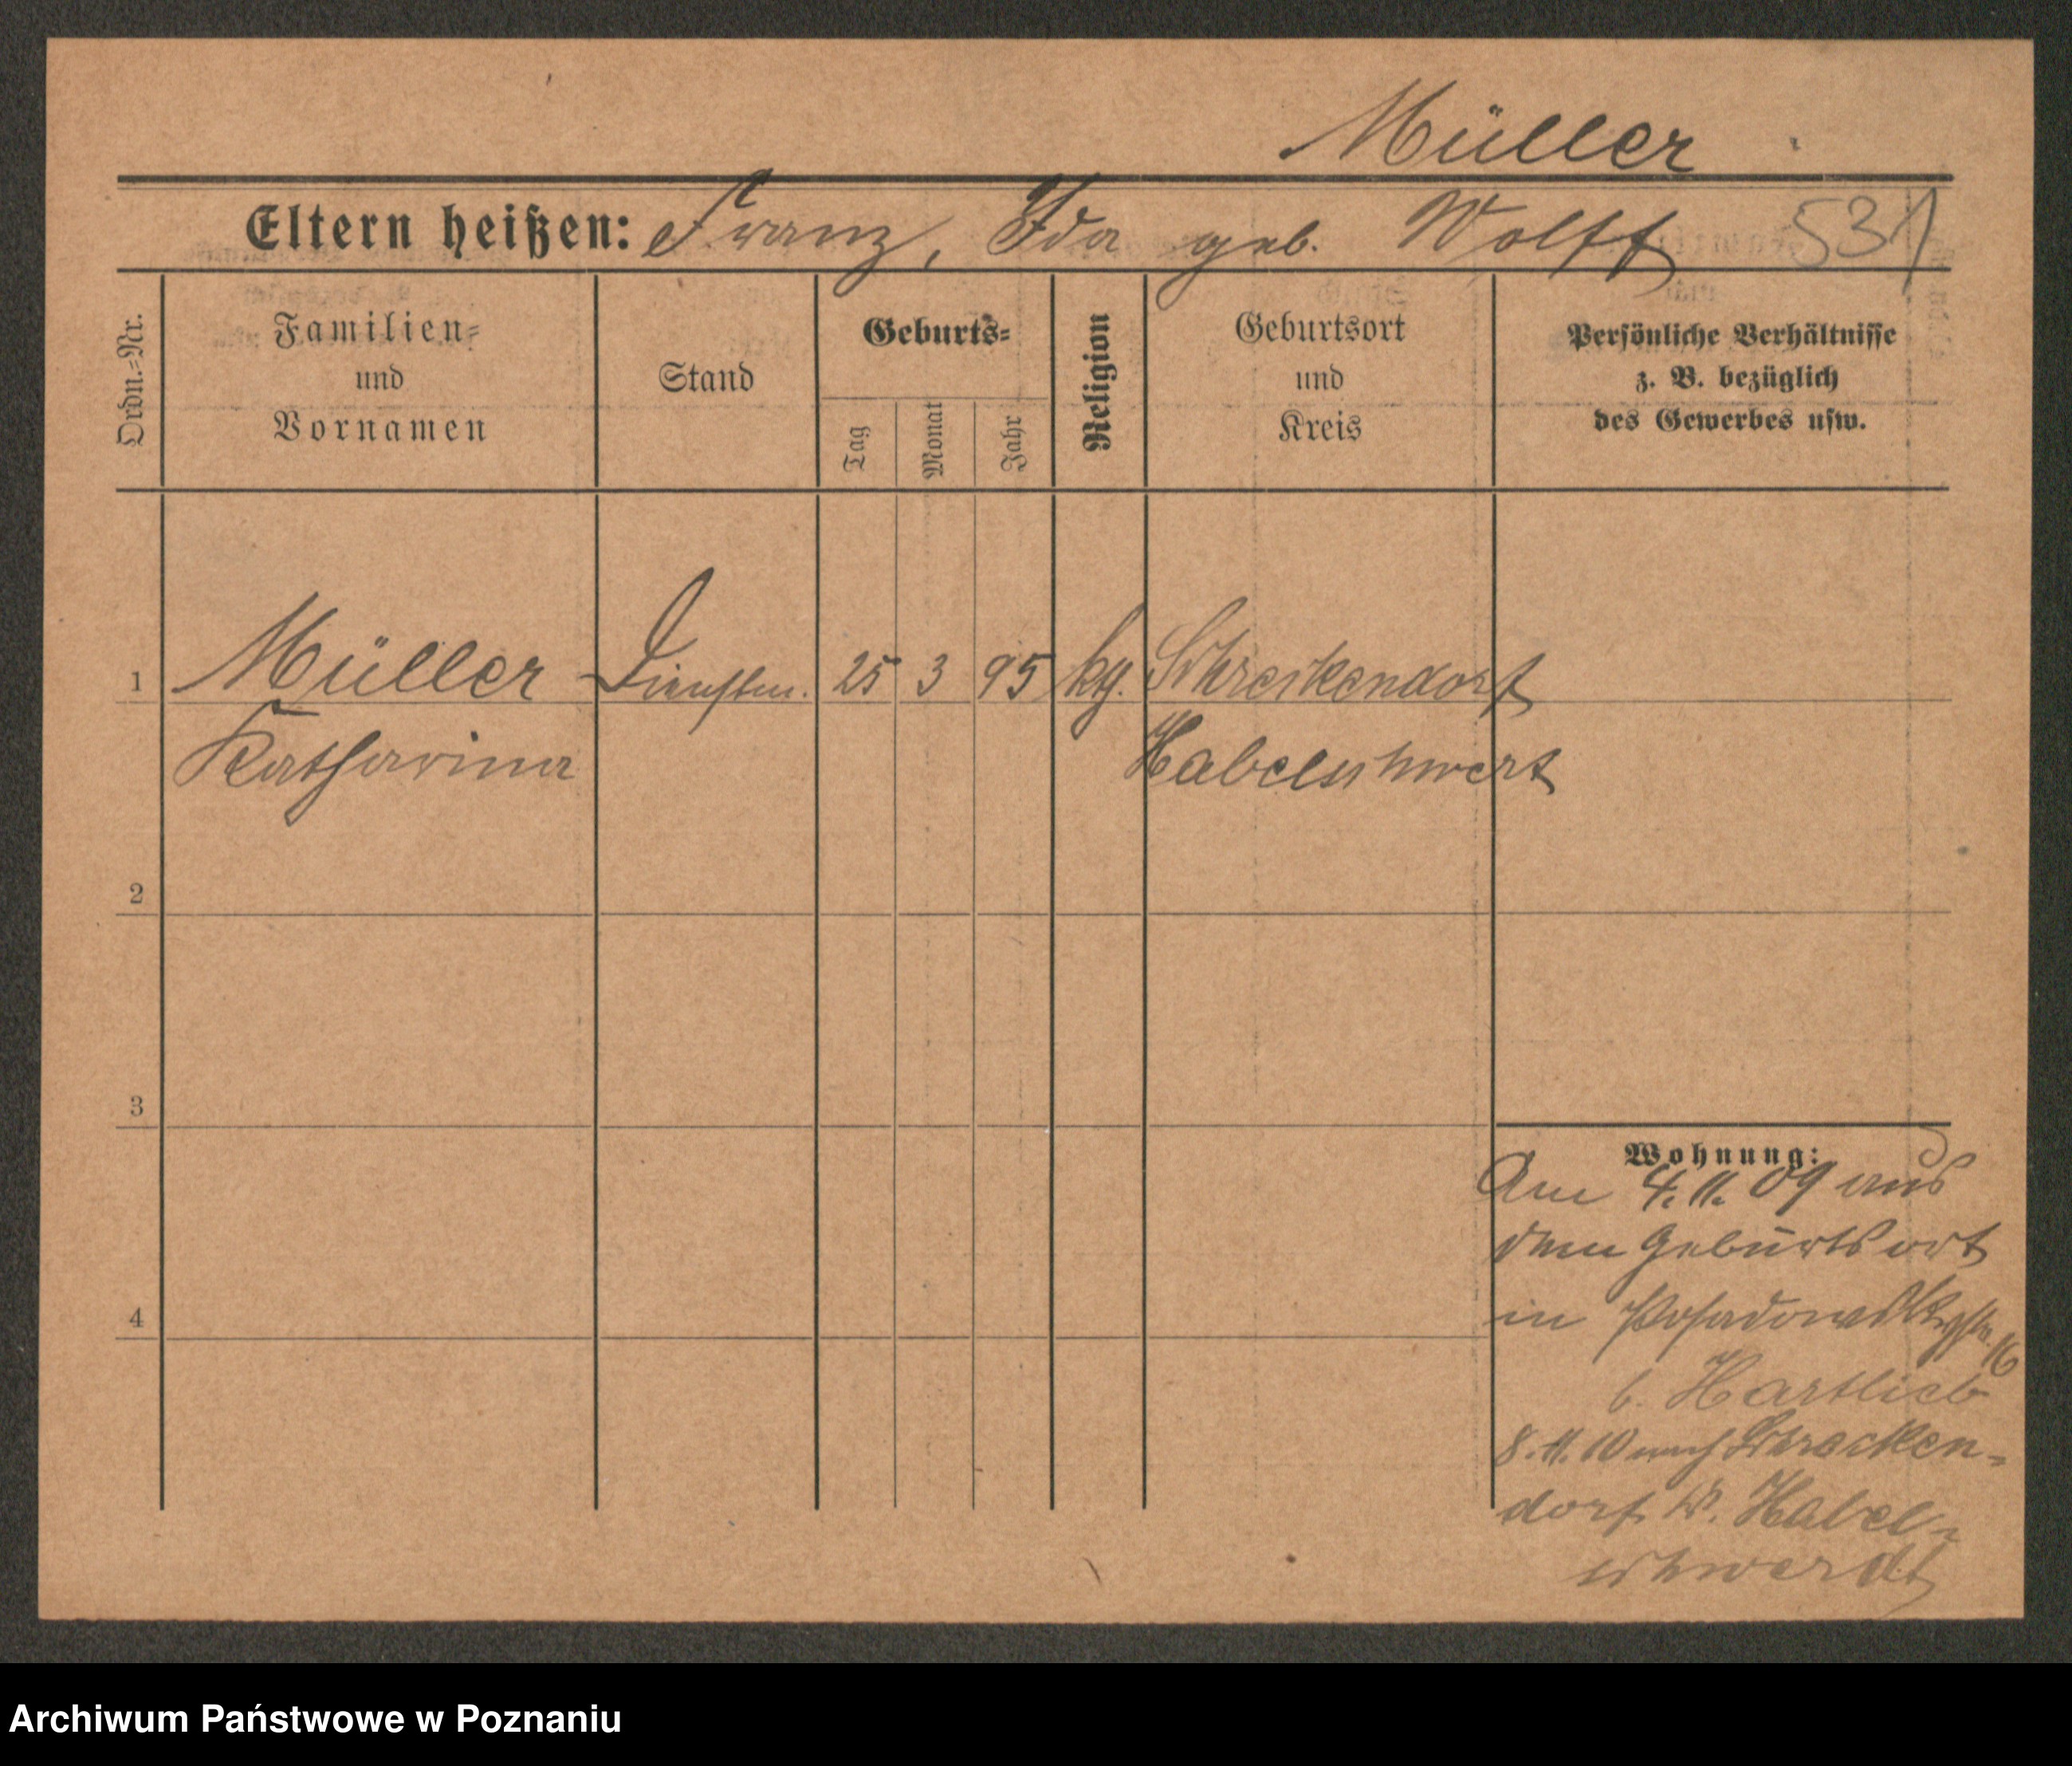 Müller
Eltern heißen: Franz, Ida geb. Wolff 531
Ordn.=Nr.
Familien=
und
Vornamen
Stand
Geburts=
Tag
Monat
Jahr
Religion
Geburtsort
und
Kreis
Persönliche Verhältnisse
z. B. bezüglich
des Gewerbes usw.
1 Müller Dienstm. 25 3 95 kg. Schreckendorf
Katharina Habelschwert
2
3
4
Wohnung:
Am 4. 11. 09 aus
dem Geburtsort
in Posadowskystr. 16
b. Hartlieb
8. 11. 10 nach Schrecken-
dorf Kr. Habel-
schwerdt
Archiwum Państwowe w Poznaniu